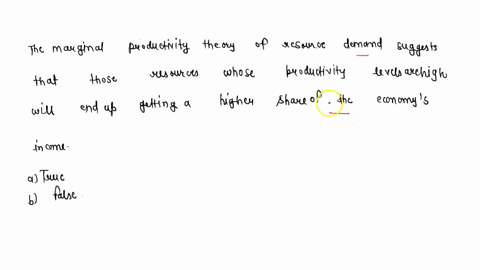 The marginal productivity theory of resource demand suggests
that those resources whose productivity levels are high
will end up getting a higher share of the economy's
income.
a) True
b) false.